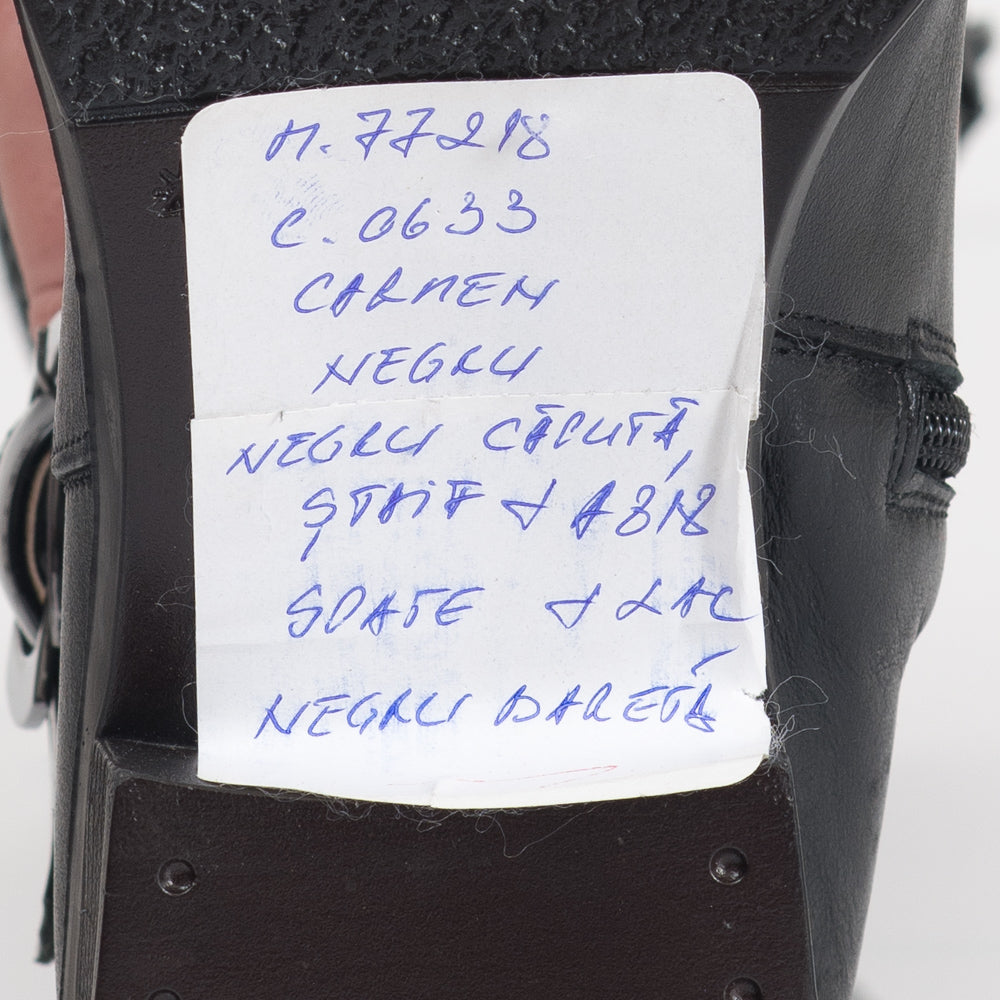 M. 77218
C. 0633
CARMEN
NEGRU
NEGRU CĂPUTĂ,
ȘTAIF + A818
SPATE + LAC
NEGRU BARETĂ